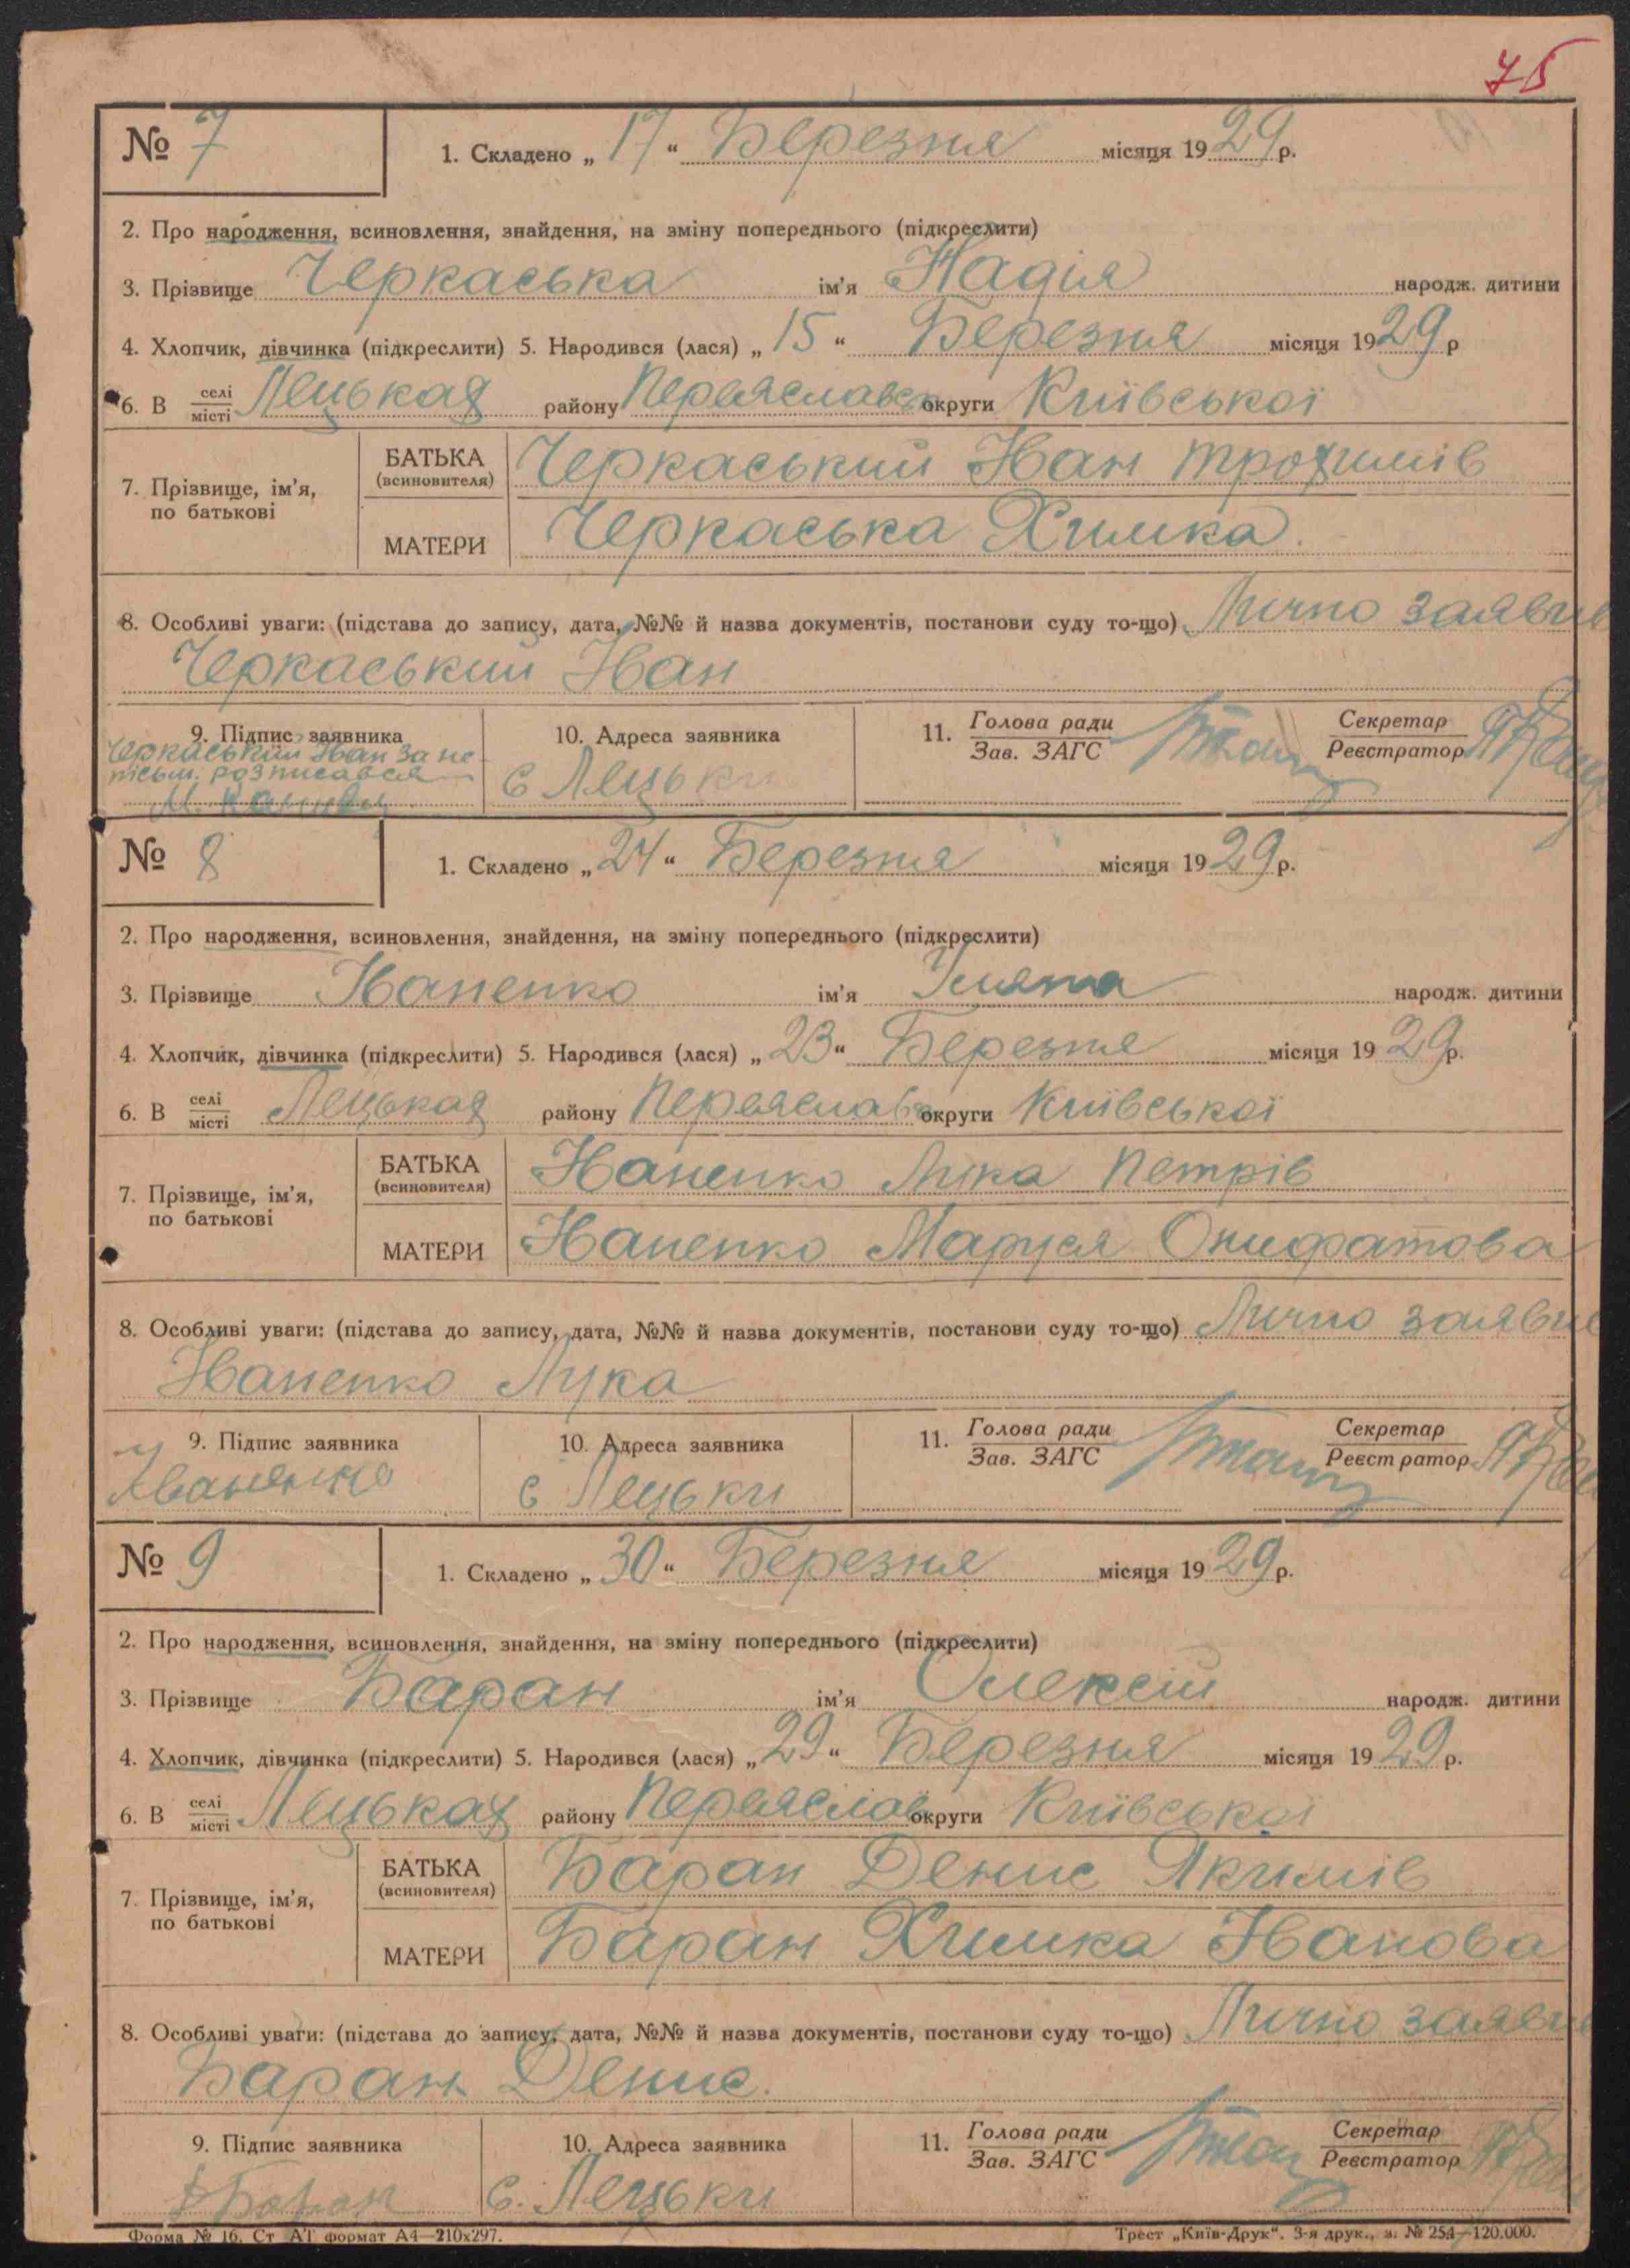 75
№ 7
1. Складено „ 17 “ Березня місяця 1929 р.
2. Про народження, всиновлення, знайдення, на зміну попереднього (підкреслити)
3. Прізвище Черкаська ім’я Надія народж. дитини
4. Хлопчик, дівчинка (підкреслити) 5. Народився (лася) „ 15 “ Березня місяця 1929 р
6. В селі/місті Лецьках району Переяславс округи Київської
7. Прізвище, ім’я, по батькові
БАТЬКА (всиновителя) Черкаський Іван Трохимів
МАТЕРИ Черкаська Химка
8. Особливі уваги: (підстава до запису, дата, №№ й назва документів, постанови суду то-що) Лично заявив
Черкаський Іван
9. Підпис заявника
Черкаський Іван за не-
письм. розписався
10. Адреса заявника
с Лецьки
11. Голова ради
Зав. ЗАГС
Секретар
Реєстратор
№ 8
1. Складено „ 24 “ Березня місяця 1929 р.
2. Про народження, всиновлення, знайдення, на зміну попереднього (підкреслити)
3. Прізвище Іваненко ім’я Уляна народж. дитини
4. Хлопчик, дівчинка (підкреслити) 5. Народився (лася) „ 23 “ Березня місяця 1929 р.
6. В селі/місті Лецьках району Переяслав округи Київської
7. Прізвище, ім’я, по батькові
БАТЬКА (всиновителя) Іваненко Лука Петрів
МАТЕРИ Іваненко Маруся Онифатова
8. Особливі уваги: (підстава до запису, дата, №№ й назва документів, постанови суду то-що) Лично заявив
Іваненко Лука
9. Підпис заявника
Іваненко
10. Адреса заявника
с Лецьки
11. Голова ради
Зав. ЗАГС
Секретар
Реєстратор
№ 9
1. Складено „ 30 “ Березня місяця 1929 р.
2. Про народження, всиновлення, знайдення, на зміну попереднього (підкреслити)
3. Прізвище Баран ім’я Олексій народж. дитини
4. Хлопчик, дівчинка (підкреслити) 5. Народився (лася) „ 29 “ Березня місяця 1929 р.
6. В селі/місті Лецьках району Переяслав округи Київської
7. Прізвище, ім’я, по батькові
БАТЬКА (всиновителя) Баран Денис Якимів
МАТЕРИ Баран Химка Іванова
8. Особливі уваги: (підстава до запису, дата, №№ й назва документів, постанови суду то-що) Лично заявив
Баран Денис.
9. Підпис заявника
Д Баран
10. Адреса заявника
с. Лецьки
11. Голова ради
Зав. ЗАГС
Секретар
Реєстратор
Форма № 16. Ст АТ формат А4—210х297.
Трест „Київ-Друк“. 3-я друк., з. № 254—120.000.